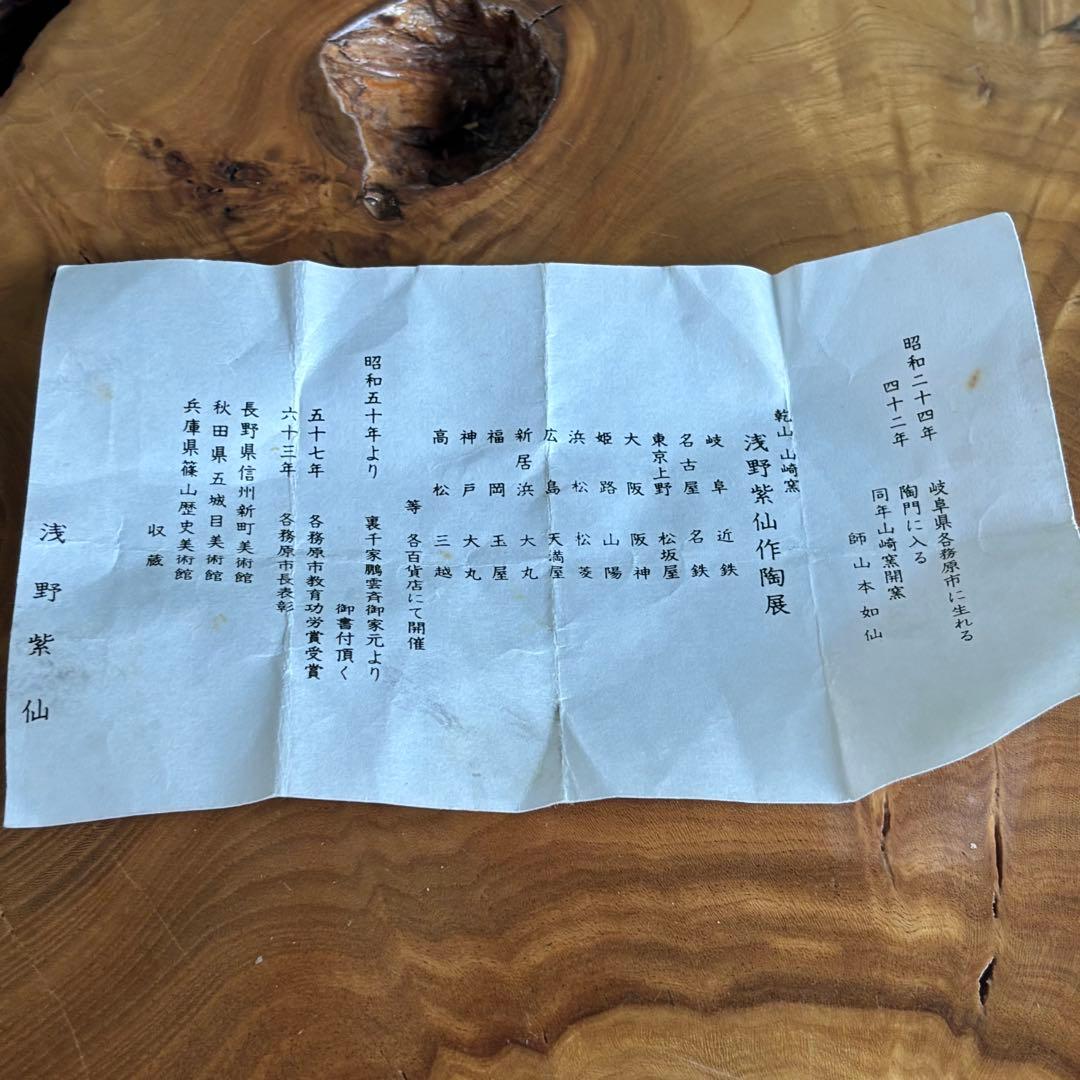 昭和二十四年 岐阜県各務原市に生れる
四十二年 陶門に入る
同年山崎窯開窯
師山本如仙
乾山 山崎窯
浅野紫仙作陶展
岐阜 近鉄
名古屋 名鉄
東京上野 松坂屋
大阪 阪神
姫路 山陽
浜松 松菱
広島 天満屋
新居浜 大丸
福岡 玉屋
神戸 大丸
高松 三越
等 各百貨店にて開催
昭和五十年より 裏千家鵬雲斉御家元より
御書付頂く
五十七年 各務原市教育功労賞受賞
六十三年 各務原市長表彰
長野県信州新町美術館
秋田県五城目美術館
兵庫県篠山歴史美術館
収蔵
浅野紫仙